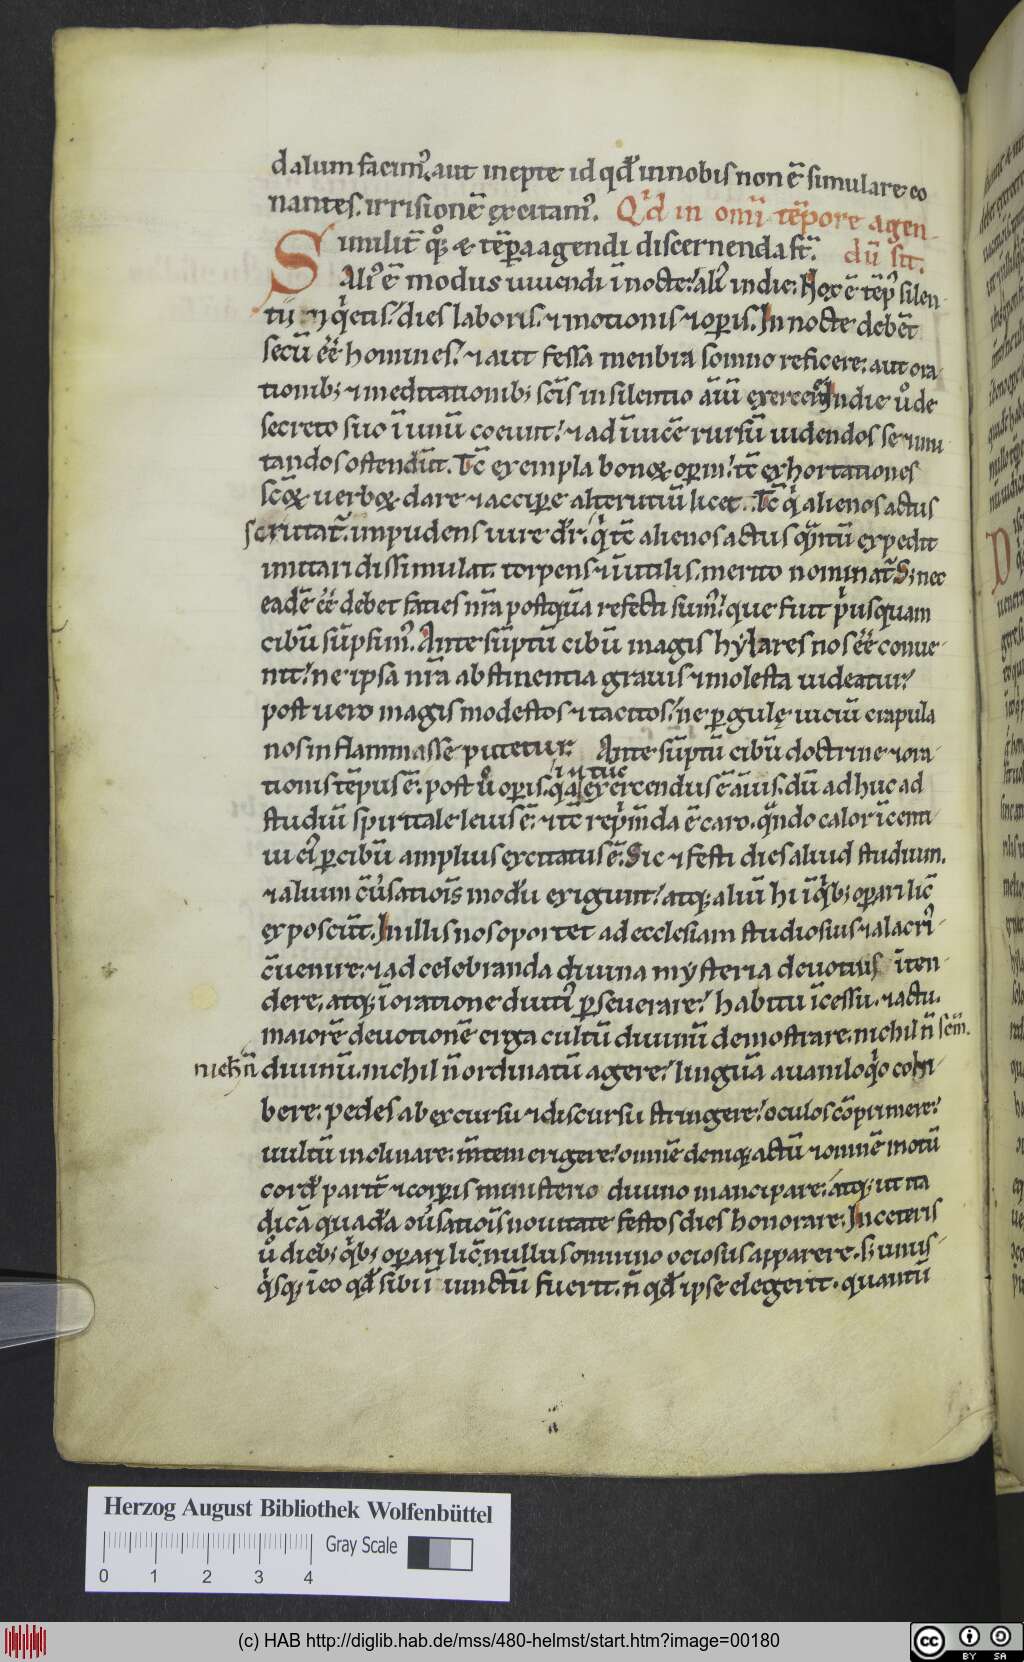 dalum facim᷒. aut inepte id qd̄ in nobis non ē simulare co
nantes. irrisionē excitam᷒. Qd̄ in omī tēpore agen-
Similit̄ quoq; & tēpora agendi discernenda st̄. dū sit.
Alī ē modus uiuendi ī nocte. alī in die. Hec ē tēp᷒ silen-
tii & qͥetis. dies laboris. & motionis & operis. In nocte debēt
secū ēē homines. & aut fessa menbra somno reficere. aut ora-
tionib; & meditationib; scīs in silentio aīū exercere. In die uͦ de
secreto suo ī unū coeunt. & ad īuicē rursū uidendos se & imi
tandos ostendūt. Tc̄ exempla bonoꝝ operū. tc̄ exhortationes
scōꝝ uerboꝝ dare & accipere alterutrū licet. Tc̄ qͥ alienos actus
scrutat̄. impudens iure dr̄. qͥ tc̄ alienos actus qͣntū expedit
imitari dissimulat. torpens & īutilis. merito nominat̄. S; nec
eadē ēē debet faties nr̄a postquā refecti sum᷒. que fuit pͥusquam
cibū sūpsim᷒. Ante sūptū cibū magis hylares nos ēē conue-
nit. ne ipsa nr̄a abstinentia grauis & molesta uideatur.
post uero magis modestos & tacitos. ne ꝑ gulę uiciū crapula
nos inflammasse putetur. Ante sūptū cibū doctrine & ora-
in tuē
tionis tēpus ē. post uͦ operis. qͣ exercendus ē aīus. dū adhuc ad
studiū spiritale leuis ē. & tc̄ repͥm̄da ē caro. qͣndo calor īcenti
ui ei᷒ ꝑ cibū amplius excitatus ē. Sic & festi dies aliud studium.
& alium cūersatiōis modū exigunt. atq; aliū hi ī qͥb; operari lic̄
exposcūt. In illis nos oportet ad ecclesiam studiosius & alacri᷒
cūenire. & ad celebranda diuina mysteria deuotius īten-
dere. atq; ī oratione diuti᷒ ꝑseuerare. habitu īcessu. & actu.
maiorē deuotionē erga cultū diuinū demostrare. nichil n̄ scm̄.
nich n̄ diuinū. nichil n̄ ordinatū agere. linguā a uaniloqͥo cohi-
bere. pedes ab excursu & discursu stringere. oculos cōprimere.
uultū inclinare. mētem erigere. omnē deniq; actū & omnē motū
cordis parit̄ & corporis ministerio diuino mancipare. atq; ut ita
dicā quadā cūersatiōis nouitate festos dies honorare. In ceteris
uͦ dieb; qͥb; operari lic̄. nullus omnino ociosus apparere. s; unus-
qͥsq; ī eo qd̄ sibi īiunctū fuerit. n̄ qd̄ ipse elegerit. quantū
Herzog August Bibliothek Wolfenbüttel
Gray Scale
0 1 2 3 4
(c) HAB http://diglib.hab.de/mss/480-helmst/start.htm?image=00180
cc BY SA